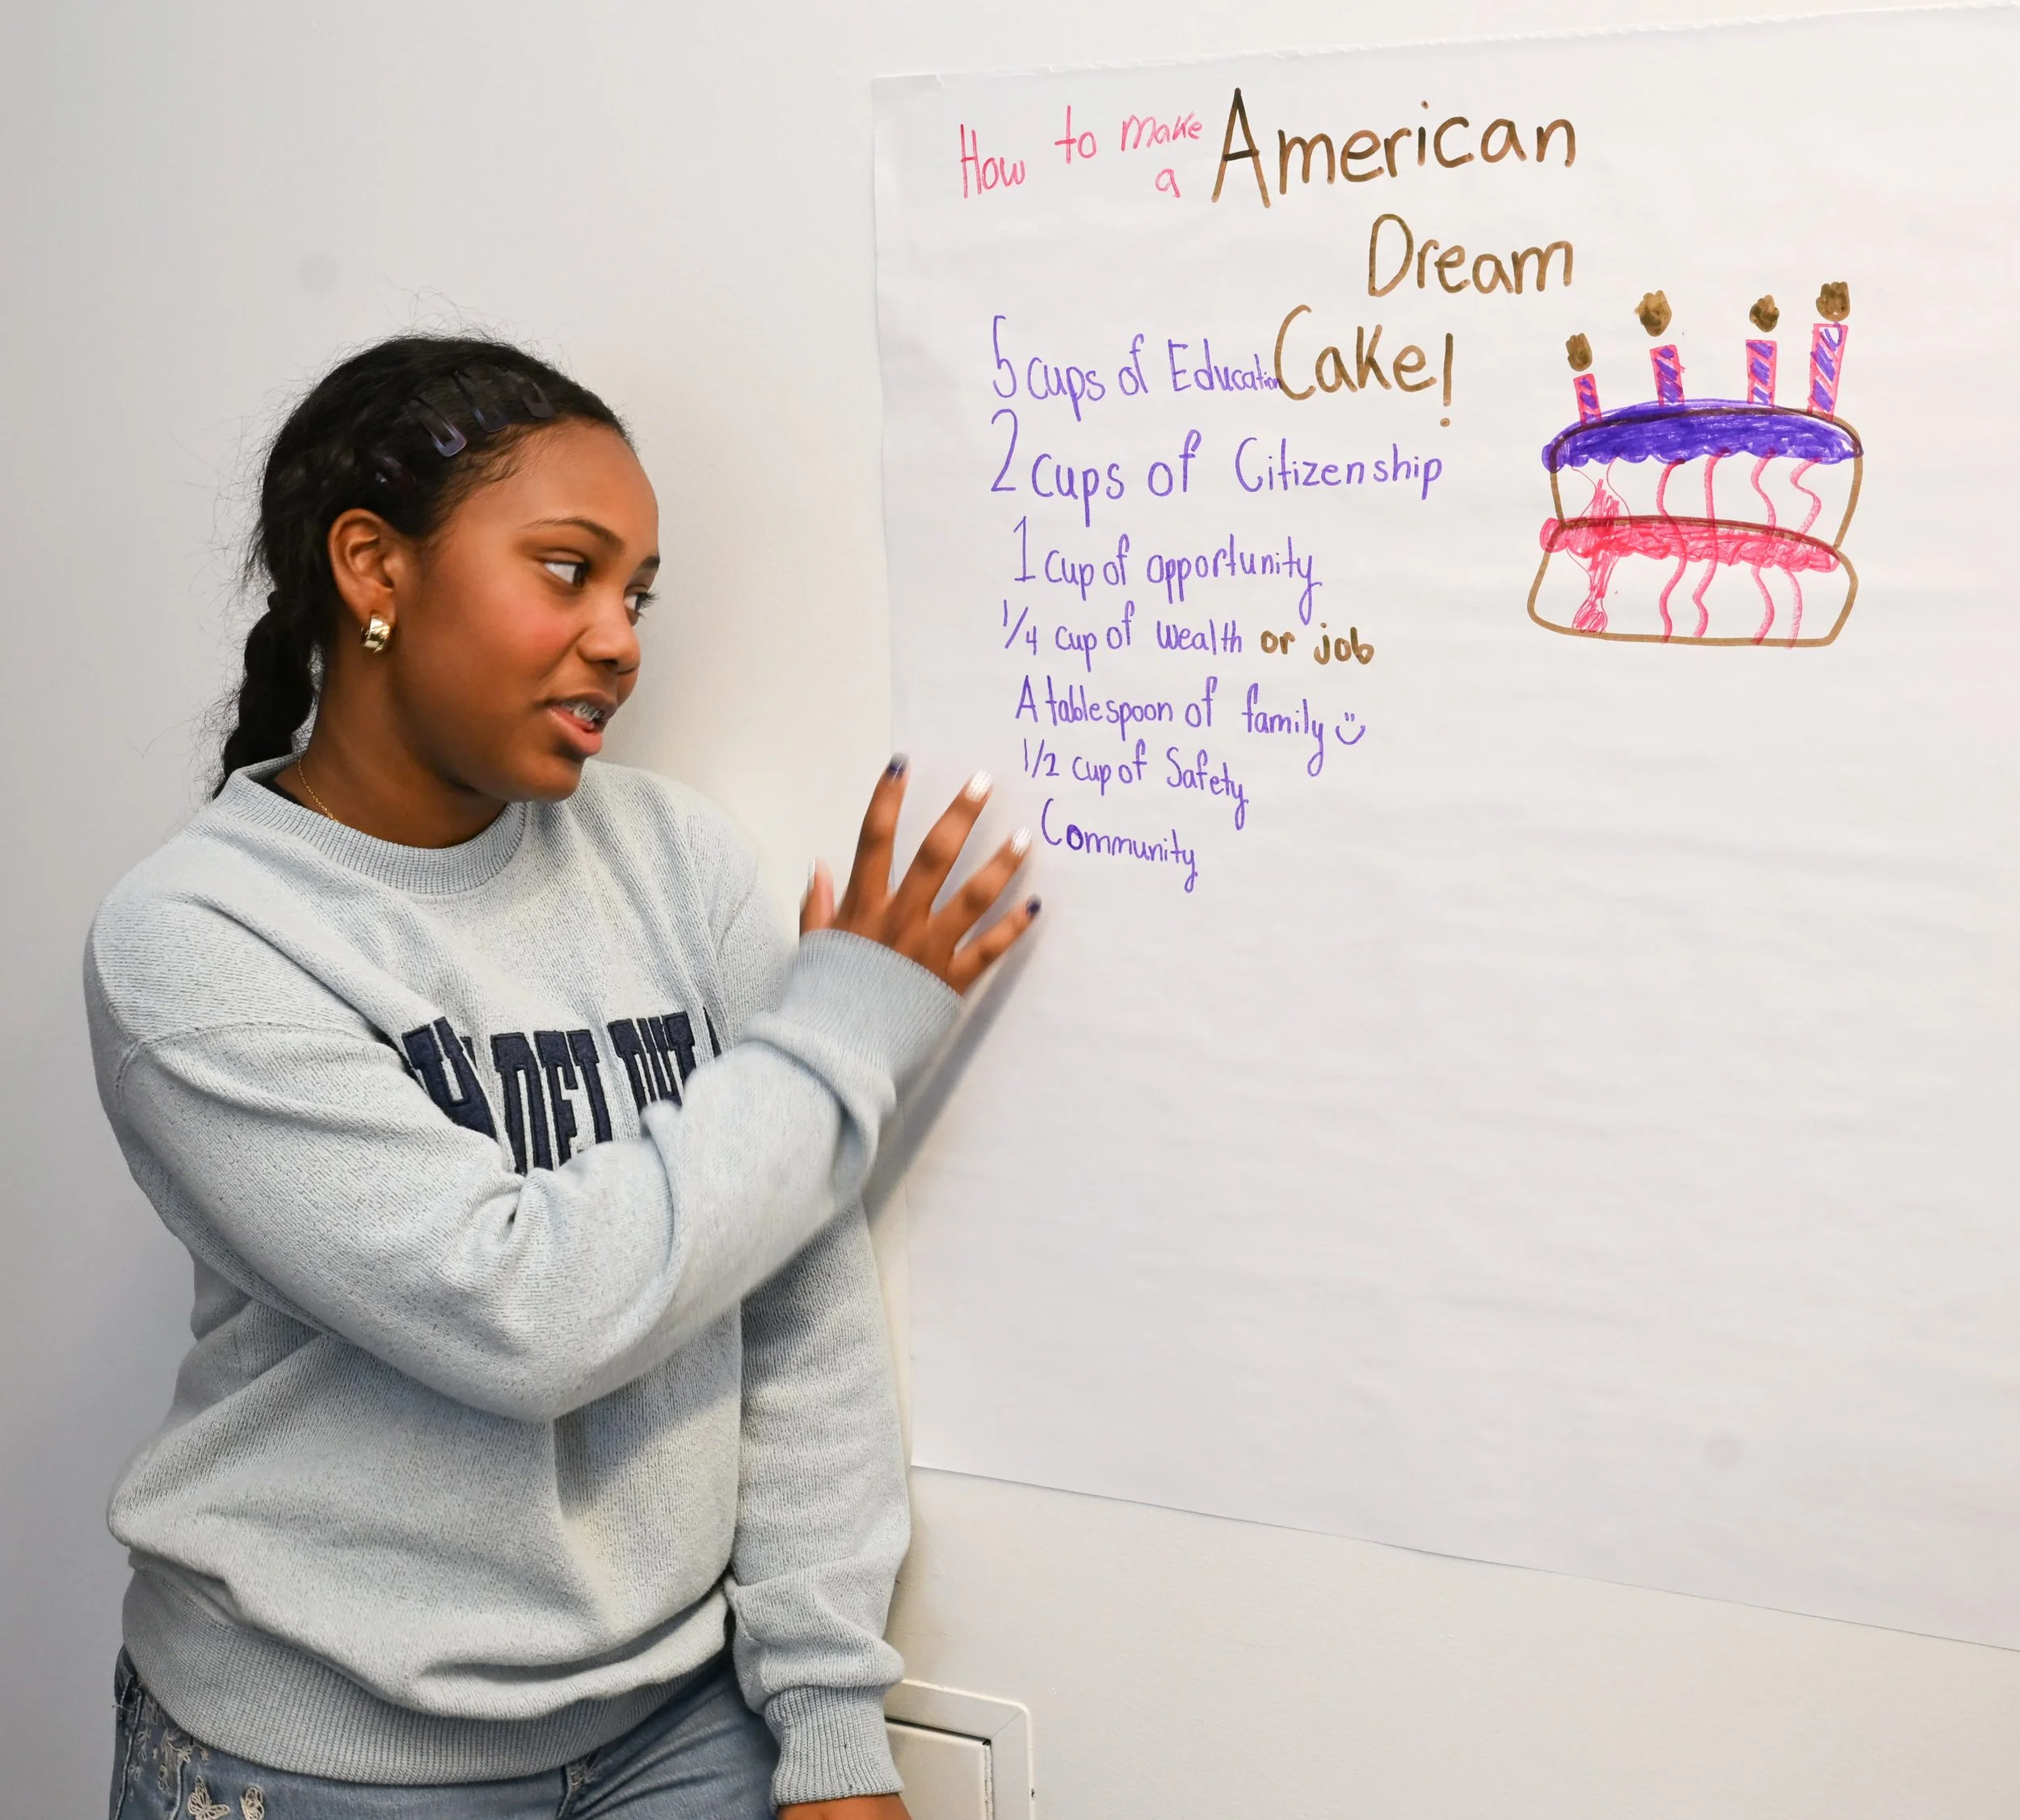 How to make a American
Dream
Cake!
5 cups of Education
2 cups of Citizenship
1 cup of opportunity
1/4 cup of wealth or job
A tablespoon of family
1/2 cup of Safety
Community